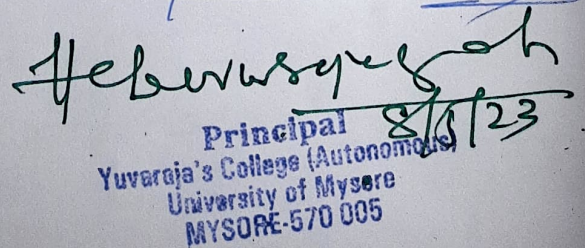 8/5/23
Principal
Yuvaraja's College (Autonomous)
University of Mysore
MYSORE-570 005